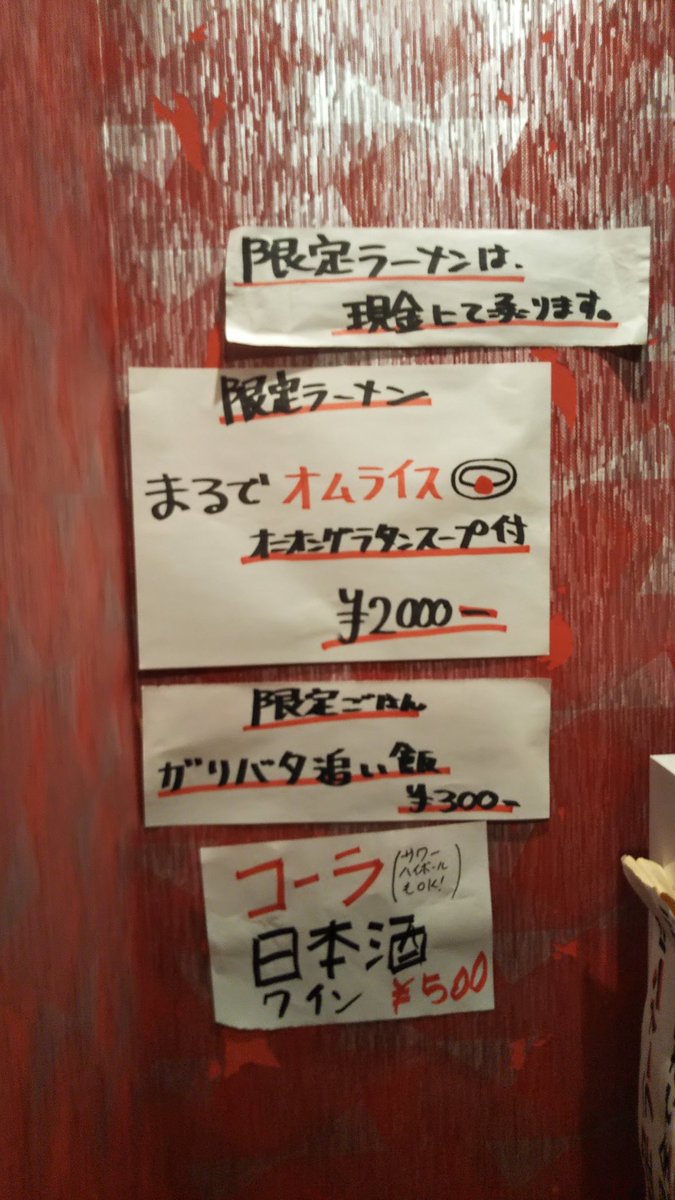 限定ラーメンは、
現金にて承ります。
限定ラーメン
まるでオムライス
オニオングラタンスープ付
¥2000ー
限定ごはん
ガリバタ追い飯
¥300ー
コーラ(サワー
ハイボール
もOK!)
日本酒
ワイン ¥500